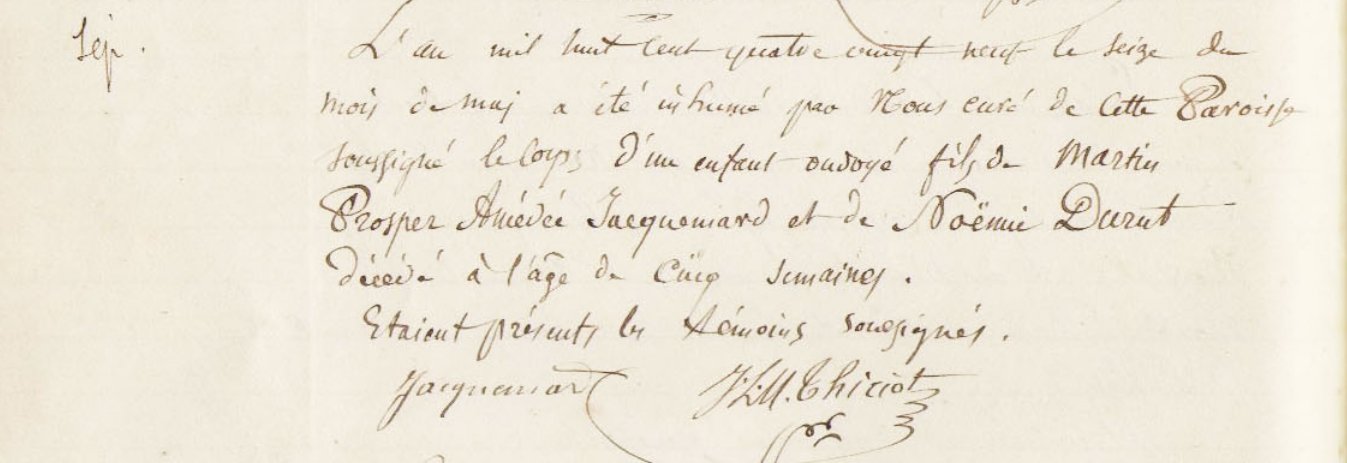 Sép.
L'an mil huit cent quatre vingt neuf le seize du
mois de mai a été inhumé par Nous curé de cette Paroisse
soussigné le corps d'un enfant ondoyé fils de Martin
Prosper Amédée Jacquemard et de Noëmie Durut
décédé à l'âge de cinq semaines.
Etaient présents les témoins soussignés.
Jacquemart Thiriot